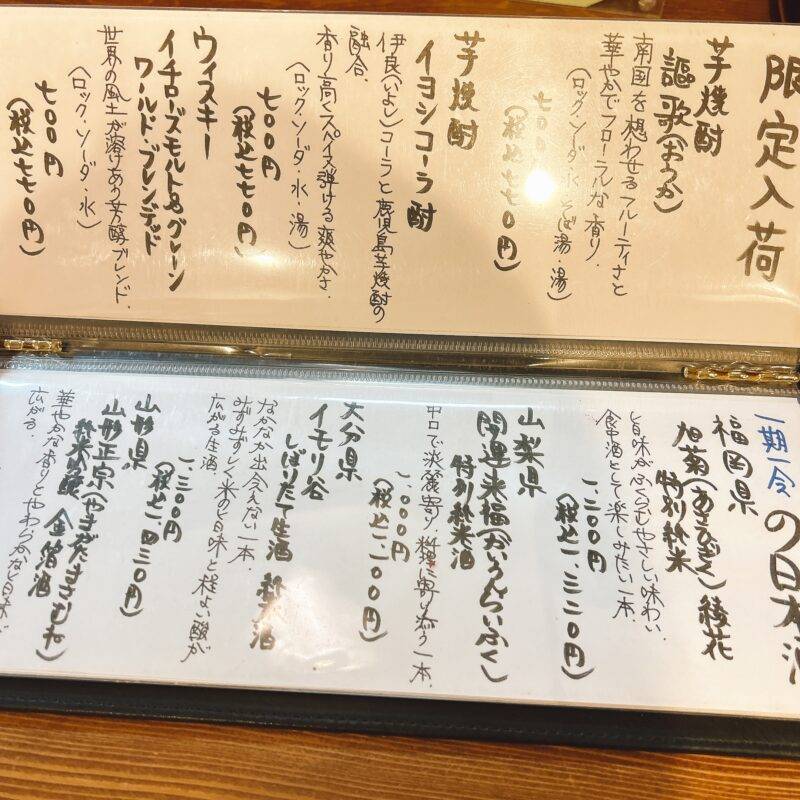 限定入荷
芋焼酎
謳歌(おうか)
南国を想わせるフルーティさと
華やかでフローラルな香り。
(ロック・ソーダ・水・そば湯・湯)
七00円
(税込七七0円)
芋焼酎
イヨシコーラ酎
伊良(いよし)コーラと鹿児島芋焼酎の
融合。
香り高くスパイス弾ける爽やかさ。
(ロック・ソーダ・水・湯)
七00円
(税込七七0円)
ウィスキー
イチローズモルト&グレーン
ワールド・ブレンデッド
世界の風土が溶けあう芳醇ブレンド。
(ロック・ソーダ・水)
七00円
(税込七七0円)
一期一会の日本酒
福岡県
旭菊(あさひぎく)綾花
特別純米
旨味がふくらむやさしい味わい。
食中酒として楽しみたい一本。
一、二00円
(税込一、三二0円)
山梨県
開運来福(かいうんらいふく)
特別純米酒
中口で淡麗寄り。料理に寄り添う一本。
一、000円
(税込一、一00円)
大分県
イモリ谷
しぼりたて生酒 純米酒
なかなか出会えない一本。
みずみずしく米の旨味と程よい酸が
広がる生酒。
一、三00円
(税込一、四三0円)
山形県
山形正宗(やまがたまさむね)
純米吟醸 金箔酒
華やかな香りとやわらかな旨味が
広がる。